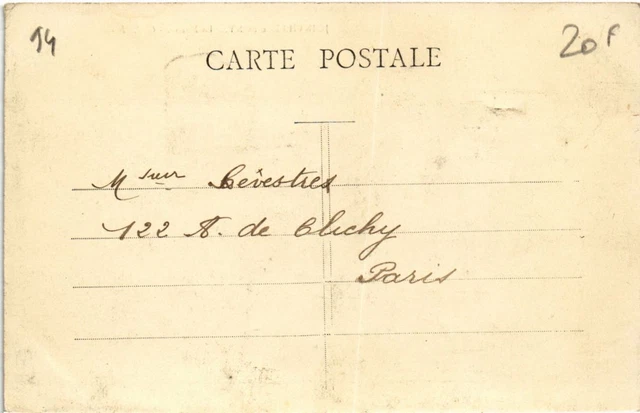 14
20F
CARTE POSTALE
Msieur Cévestres
122 A. de Clichy
Paris